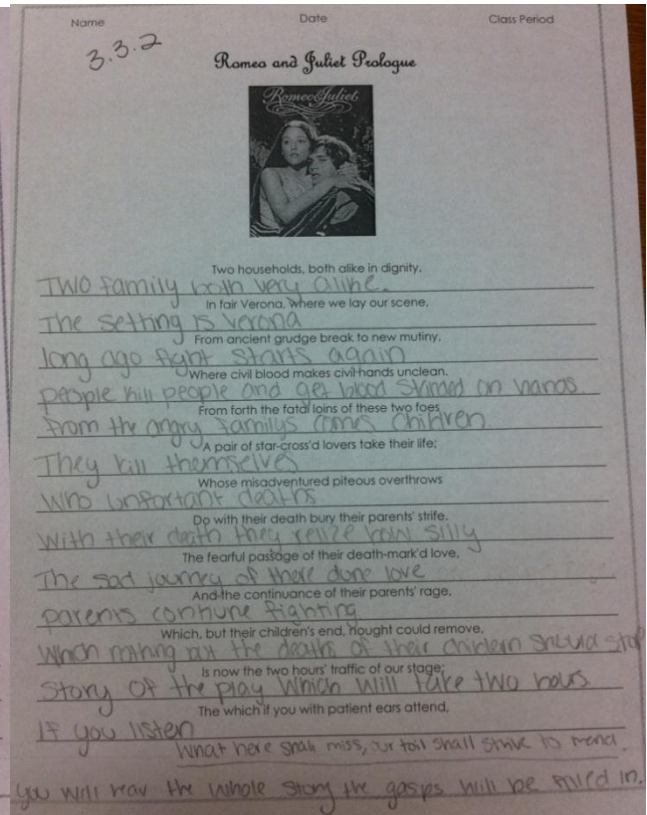 Name Date Class Period
3.3.2
Romeo and Juliet Prologue
Romeo & Juliet
Two households, both alike in dignity,
Two family both very alike.
In fair Verona, where we lay our scene,
The setting is verona
From ancient grudge break to new mutiny,
long ago fight starts again
Where civil blood makes civil hands unclean.
people kill people and get blood on hands
From forth the fatal loins of these two foes
from the angry familys comes children
A pair of star-cross'd lovers take their life;
They kill themselves
Whose misadventured piteous overthrows
Who unfortant deaths
Do with their death bury their parents' strife.
With their death they relize how silly
The fearful passage of their death-mark'd love,
The sad journey of there done love
And the continuance of their parents' rage,
parents contiune fighting
Which, but their children's end, nought could remove,
Which nothing but the deaths of their childern should stop
Is now the two hours' traffic of our stage;
Story of the play which will take two hours
The which if you with patient ears attend,
If you listen
What here shall miss, our toil shall strive to mend.
you will hear the whole story the gasps will be filled in.